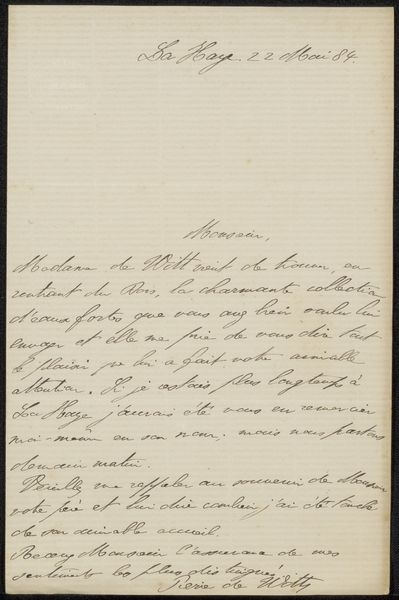 La Haye 22 Mai 84.
Monsieur,
Madame de Witt vient de trouver, en
rentrant du Bois, la charmante collection
d'eaux fortes que vous avez bien voulu lui
envoyer et elle me prie de vous dire tout
le plaisir que lui a fait votre aimable
attention. Si je restais plus longtemps à
La Haye j'aurais été vous en remercier
moi-même en son nom; mais nous partons
demain matin.
Veuillez me rappeler au souvenir de Monsieur
votre père et lui dire combien j'ai été touché
de son aimable accueil.
Recevez Monsieur l'assurance de mes
sentiments les plus distingués
Pierre de Witt